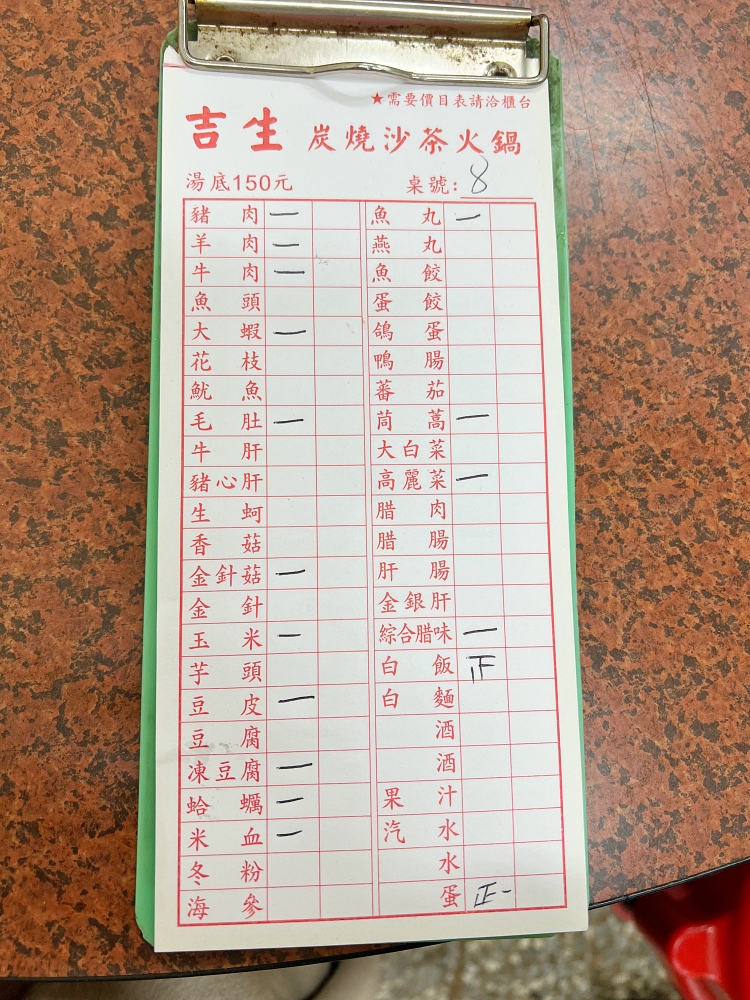 ★需要價目表請洽櫃台
吉生 炭燒沙茶火鍋
湯底150元 桌號: 8
豬肉 一 魚丸 一
羊肉 一 燕丸
牛肉 一 魚餃
魚頭 蛋餃
大蝦 一 鴿蛋
花枝 鴨腸
魷魚 蕃茄
毛肚 一 茼蒿 一
牛肝 大白菜
豬心肝 高麗菜 一
生蚵 腊肉
香菇 腊腸
金針菇 一 肝腸
金針 金銀肝
玉米 一 綜合腊味 一
芋頭 白飯 正
豆皮 一 白麵
豆腐 酒
凍豆腐 一 酒
蛤蠣 一 果汁
米血 一 汽水
冬粉 水
海參 蛋 正一